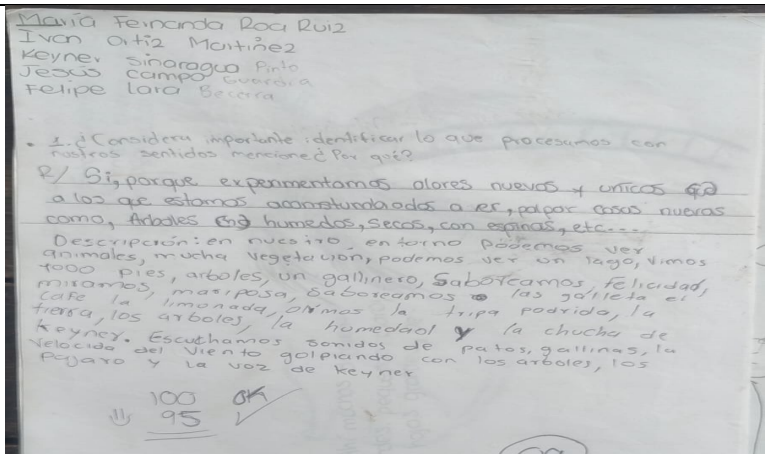 María Fernanda Roa Ruiz
Ivan Ortiz Martinez
Keyner Sinaragua Pinto
Jesús campo Guardia
Felipe Lara Becerra
• 1. ¿Considera importante identificar lo que procesamos con
nustros sentidos mencione¿ Por qué?
R/ Si, porque experimentamos olores nuevos y unicos
a los que estamos a er, palpar cosas nuevas
como, Arboles humedos, secos, con espinas, etc...
Descripción: en nuestro, entorno podemos ver
animales, mucha vegetacion, podemos ver un lago, vimos
1000 pies, arboles, un gallinero, Saboreamos, felicidad,
miramos, mariposa, saboreamos las galleta el
cafe la limonada, olimos la tripa podrida, la
tierra, los arboles, la humedad y la chucha de
Keyner. Escuchamos sonidos de patos, gallinas, la
velocida del viento golpiando con los arboles, los
pajaro y la voz de Keyner
100 OK
95